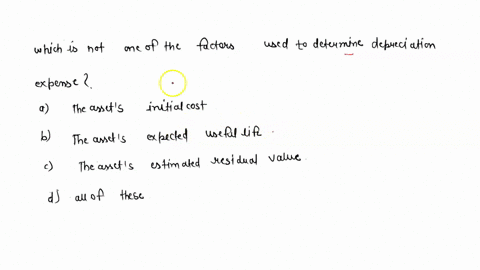 which is not one of the factors used to determine depreciation
expense?
a) The asset's initial cost
b) The asset's expected useful life.
c) The asset's estimated residual value.
d) all of these